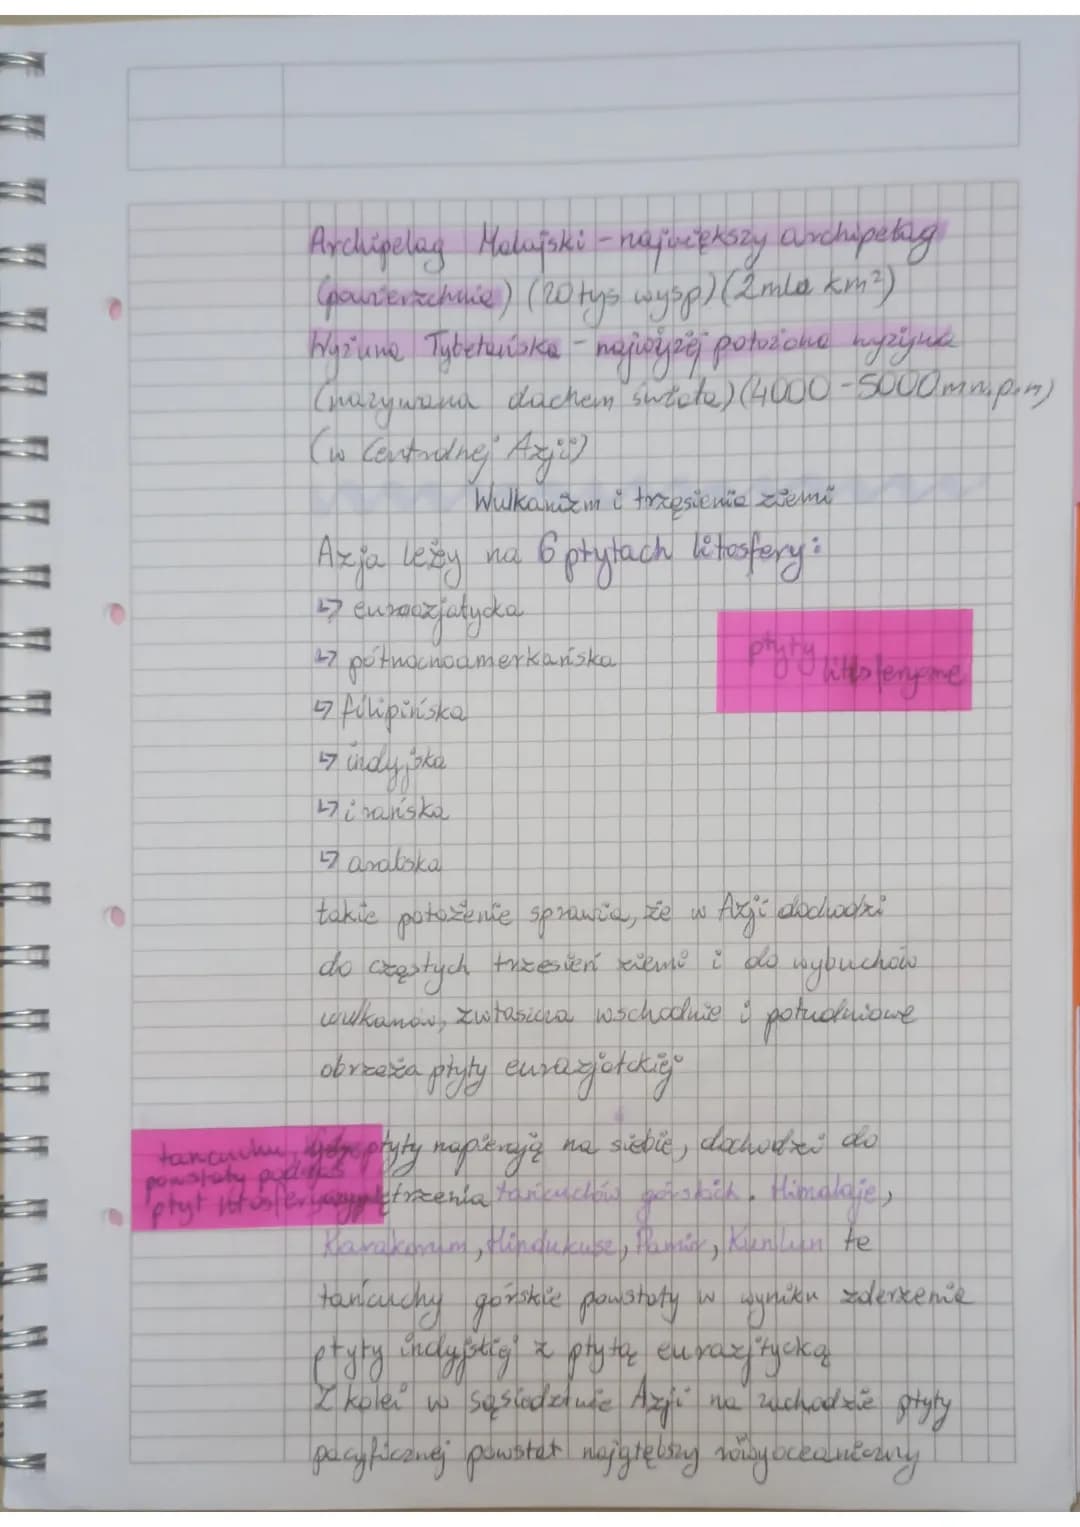 Archipelag Malajski - największy archipelag
(powierzchnia) (20 tys wysp) (2 mln km²)
Wyżyna Tybetańska - najwyżej położona wyżyna
(nazywana dachem świata) (4000 - 5000 m n.p.m)
(w Centralnej Azji)
Wulkanizm i trzęsienia ziemi
Azja leży na 6 płytach litosfery:
↳ euroazjatycka
↳ północnoamerkańska
↳ filipińska
↳ indyjska
↳ irańska
↳ arabska
płyty
litosferyczne
takie położenie sprawia, że w Azji dochodzi
do częstych trzęsień ziemi i do wybuchów
wulkanów, zwłaszcza wschodnie i południowe
obrzeża płyty eurazjatckiej
łańcuchy
powstały podczas
płyt litosfery
gdy płyty napierają na siebie, dochodzi do
wypiętrzenia łańcuchów górskich. Himalaje,
Karakorum, Hindukusz, Pamir, Kunlun te
łańcuchy górskie powstały w wyniku zderzenia
płyty indyjskiej z płytą eurazjtycką
Z kolei w sąsiedztwie Azji na zachodzie płyty
pacyficznej powstał najgłębszy rów oceaniczny